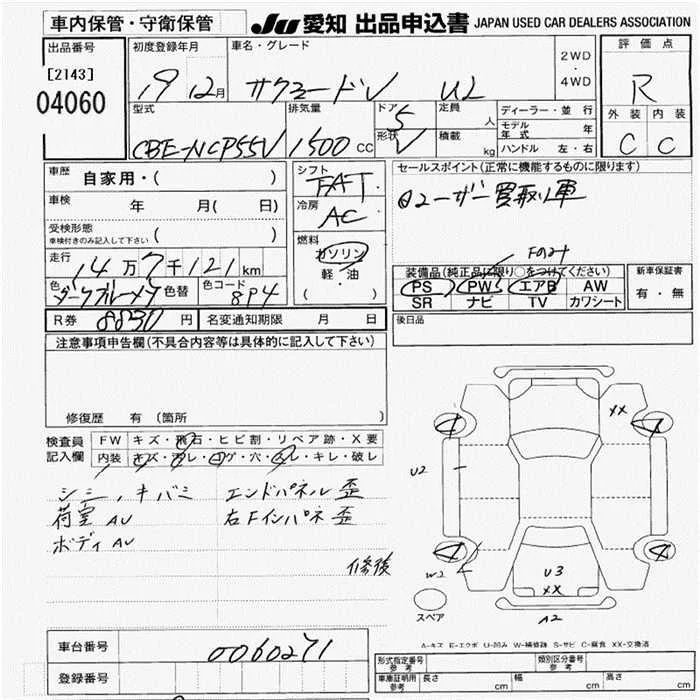 車内保管・守衛保管
JU 愛知 出品申込書 JAPAN USED CAR DEALERS ASSOCIATION
出品番号
[2143]
04060
初度登録年月
19 12月
車名・グレード
サクシードV UL
2WD
・
4WD
評価点
R
外装 内装
C C
型式
CBE-NCP55V
排気量
1500 CC
ドア 5
形状 V
定員 人
積載 kg
ディーラー・並行
モデル年式 年
ハンドル 左・右
車歴
自家用・( )
車検 年 月( 日)
受検形態
車検付きのみ記入して下さい ( )
走行
14万7千121km
色 ダークブルーメタ 色替 色コード 8P4
シフト
FAT
冷房
AC
燃料
ガソリン
軽・油
( )
セールスポイント(正常に機能するものに限ります)
①ユーザー買取り車
Fのみ
装備品(純正品に限り○をつけてください)
PS PW エアB AW
SR ナビ TV カワシート
新車保証書
有・無
R券 8830円 名変通知期限 月 日
後日品
注意事項申告欄(不具合内容等は具体的に記入して下さい)
修復歴 有 (箇所 )
検査員記入欄
FW キズ・飛石・ヒビ割・リペア跡・X要
内装 キズ・汚レ・コゲ・穴・スレ・キレ・破レ
シミ、キバミ エンドパネル歪
荷室AU 右Fインパネ歪
ボディAU
修復
XX
U2
W2
U3
XX
A2
スペア
A-キズ E-エクボ U-凹み W-補修跡 S-サビ C-腐食 XX-交換済
車台番号 0060271
登録番号
形式指定番号 参考 類別区分番号 参考
車庫証明用 参考 長さ cm 幅 cm 高さ cm